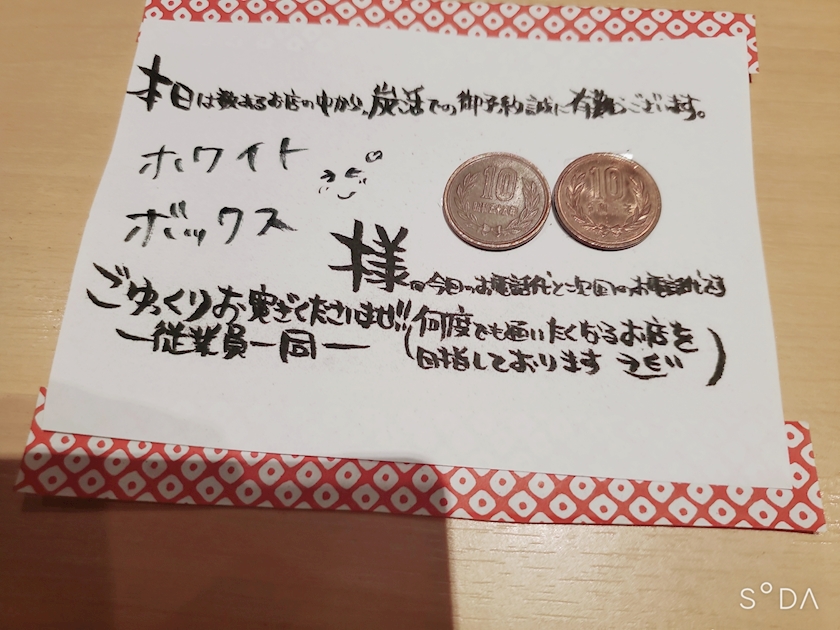 本日は数あるお店の中から、炭活での御予約誠に有難うございます。
ホワイト
ボックス
様
10
10
今回のお電話代と次回のお電話代です
ごゆっくりお寛ぎくださいませ!!
一従業員一同一
(何度でも通いたくなるお店を
目指しております
)
SODA